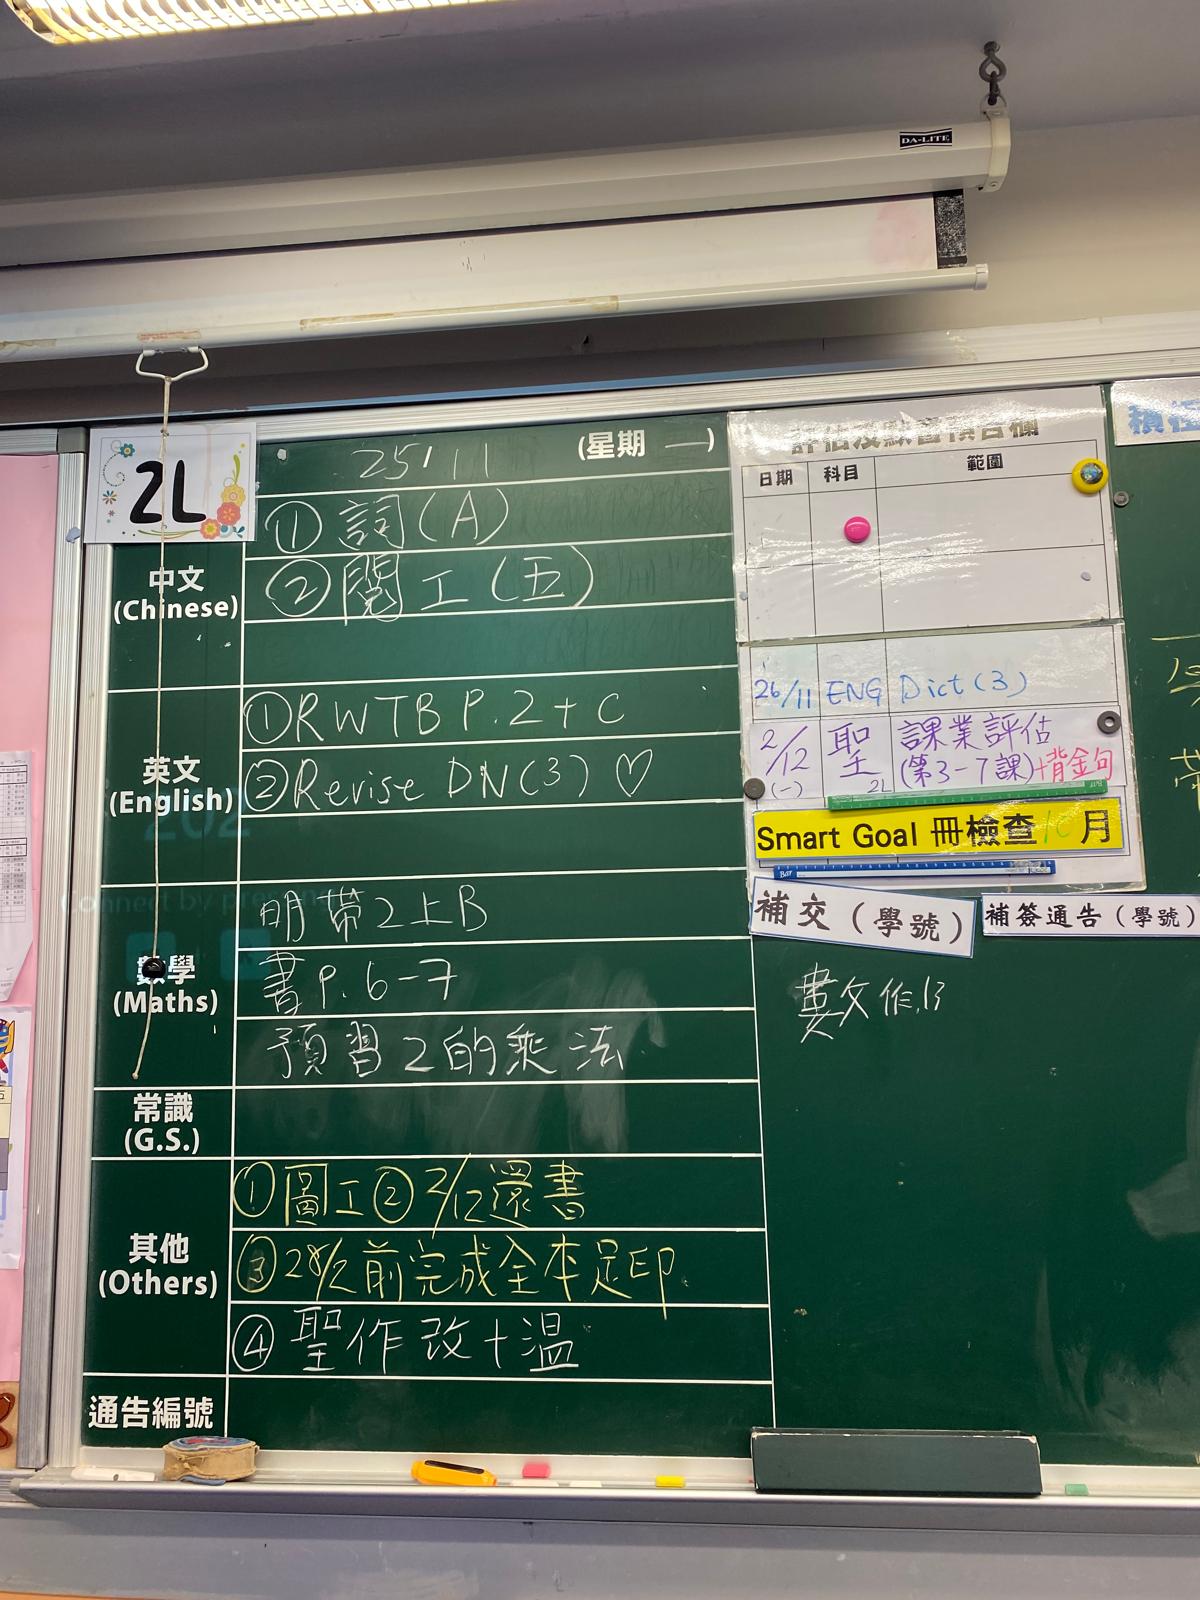 DA-LITE
2L
25/11 (星期 一)
中文
(Chinese)
① 詞(A)
② 閱工(五)
英文
(English)
① RWTB P.2+C
② Revise DN(3) ♡
數學
(Maths)
明帶2上B
書P.6-7
預習2的乘法
常識
(G.S.)
其他
(Others)
① 圖工 ② 2/12還書
③ 28/2前完成全本足印
④ 聖作改+溫
通告編號
評估及默書預告欄
日期 科目 範圍
26/11 ENG Dict(3)
2/12 (一) 聖 課業評估
(第3-7課)+背金句
2L
Smart Goal 冊檢查 10 月
補交(學號)
補簽通告(學號)
數文作.13